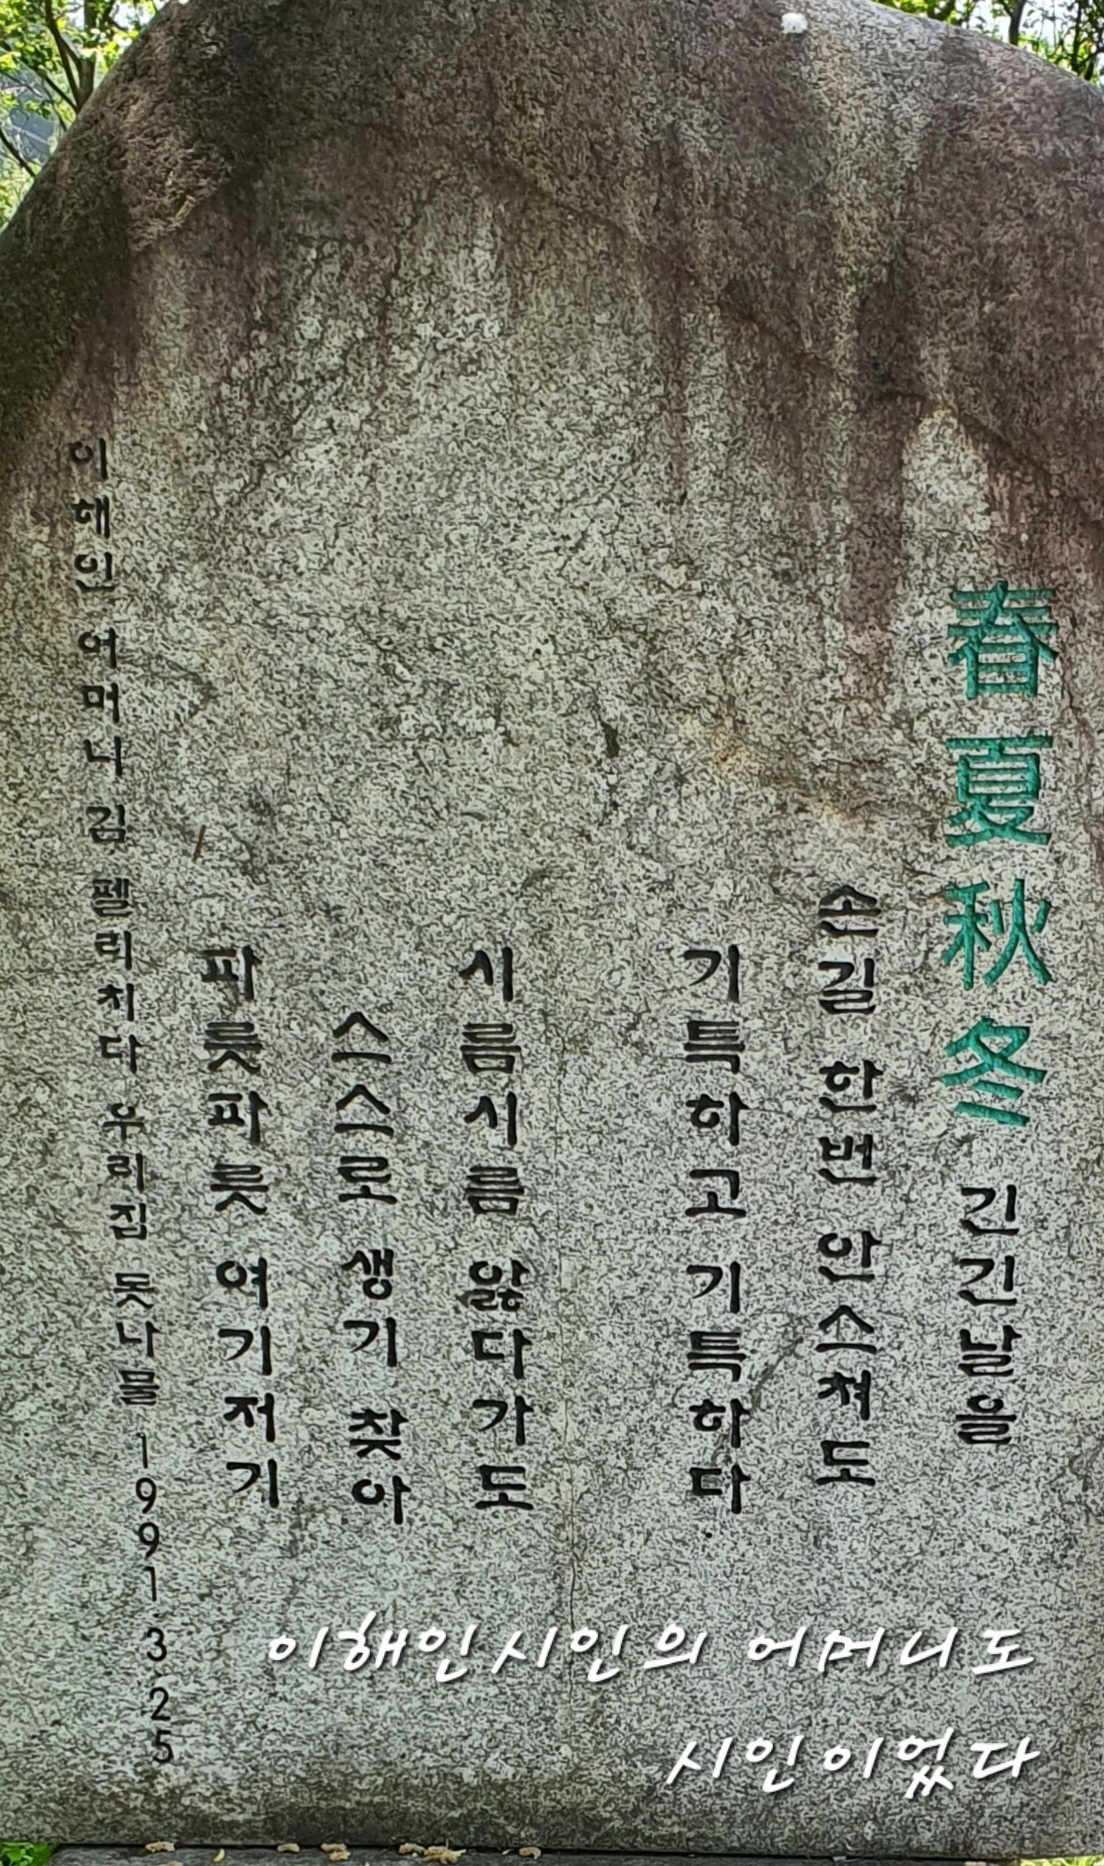 春夏秋冬 긴긴날을
손길 한번 안스쳐도
기특하고 기특하다
시름시름 앓다가도
스스로 생기 찾아
파릇파릇 여기저기
이해인 어머니 김 펠리치다 우리집 돗나물 1991.3.25
이해인시인의 어머니도
시인이었다